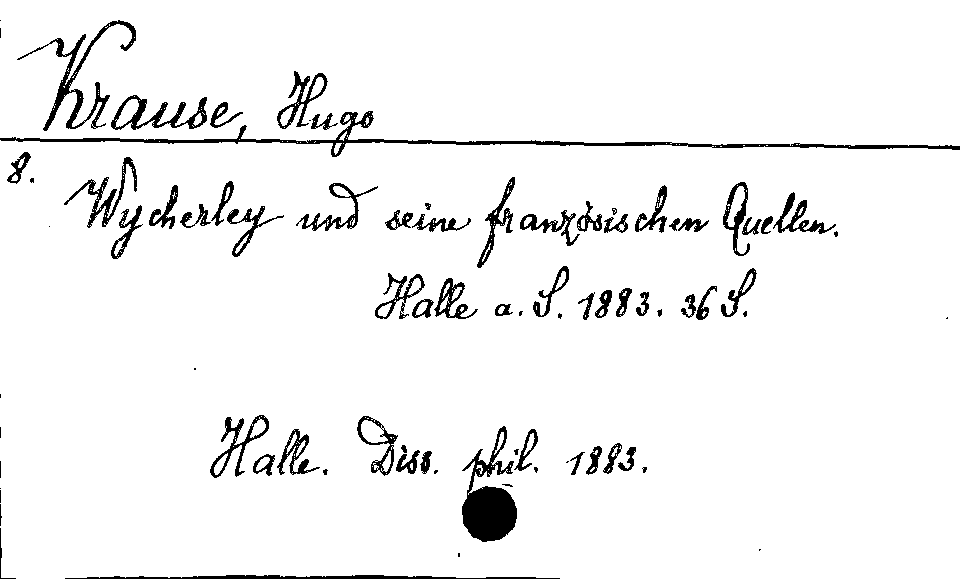 Krause, Hugo
8.
Wycherley und seine französischen Quellen.
Halle a. S. 1883. 36 S.
Halle. Diss. phil. 1883.